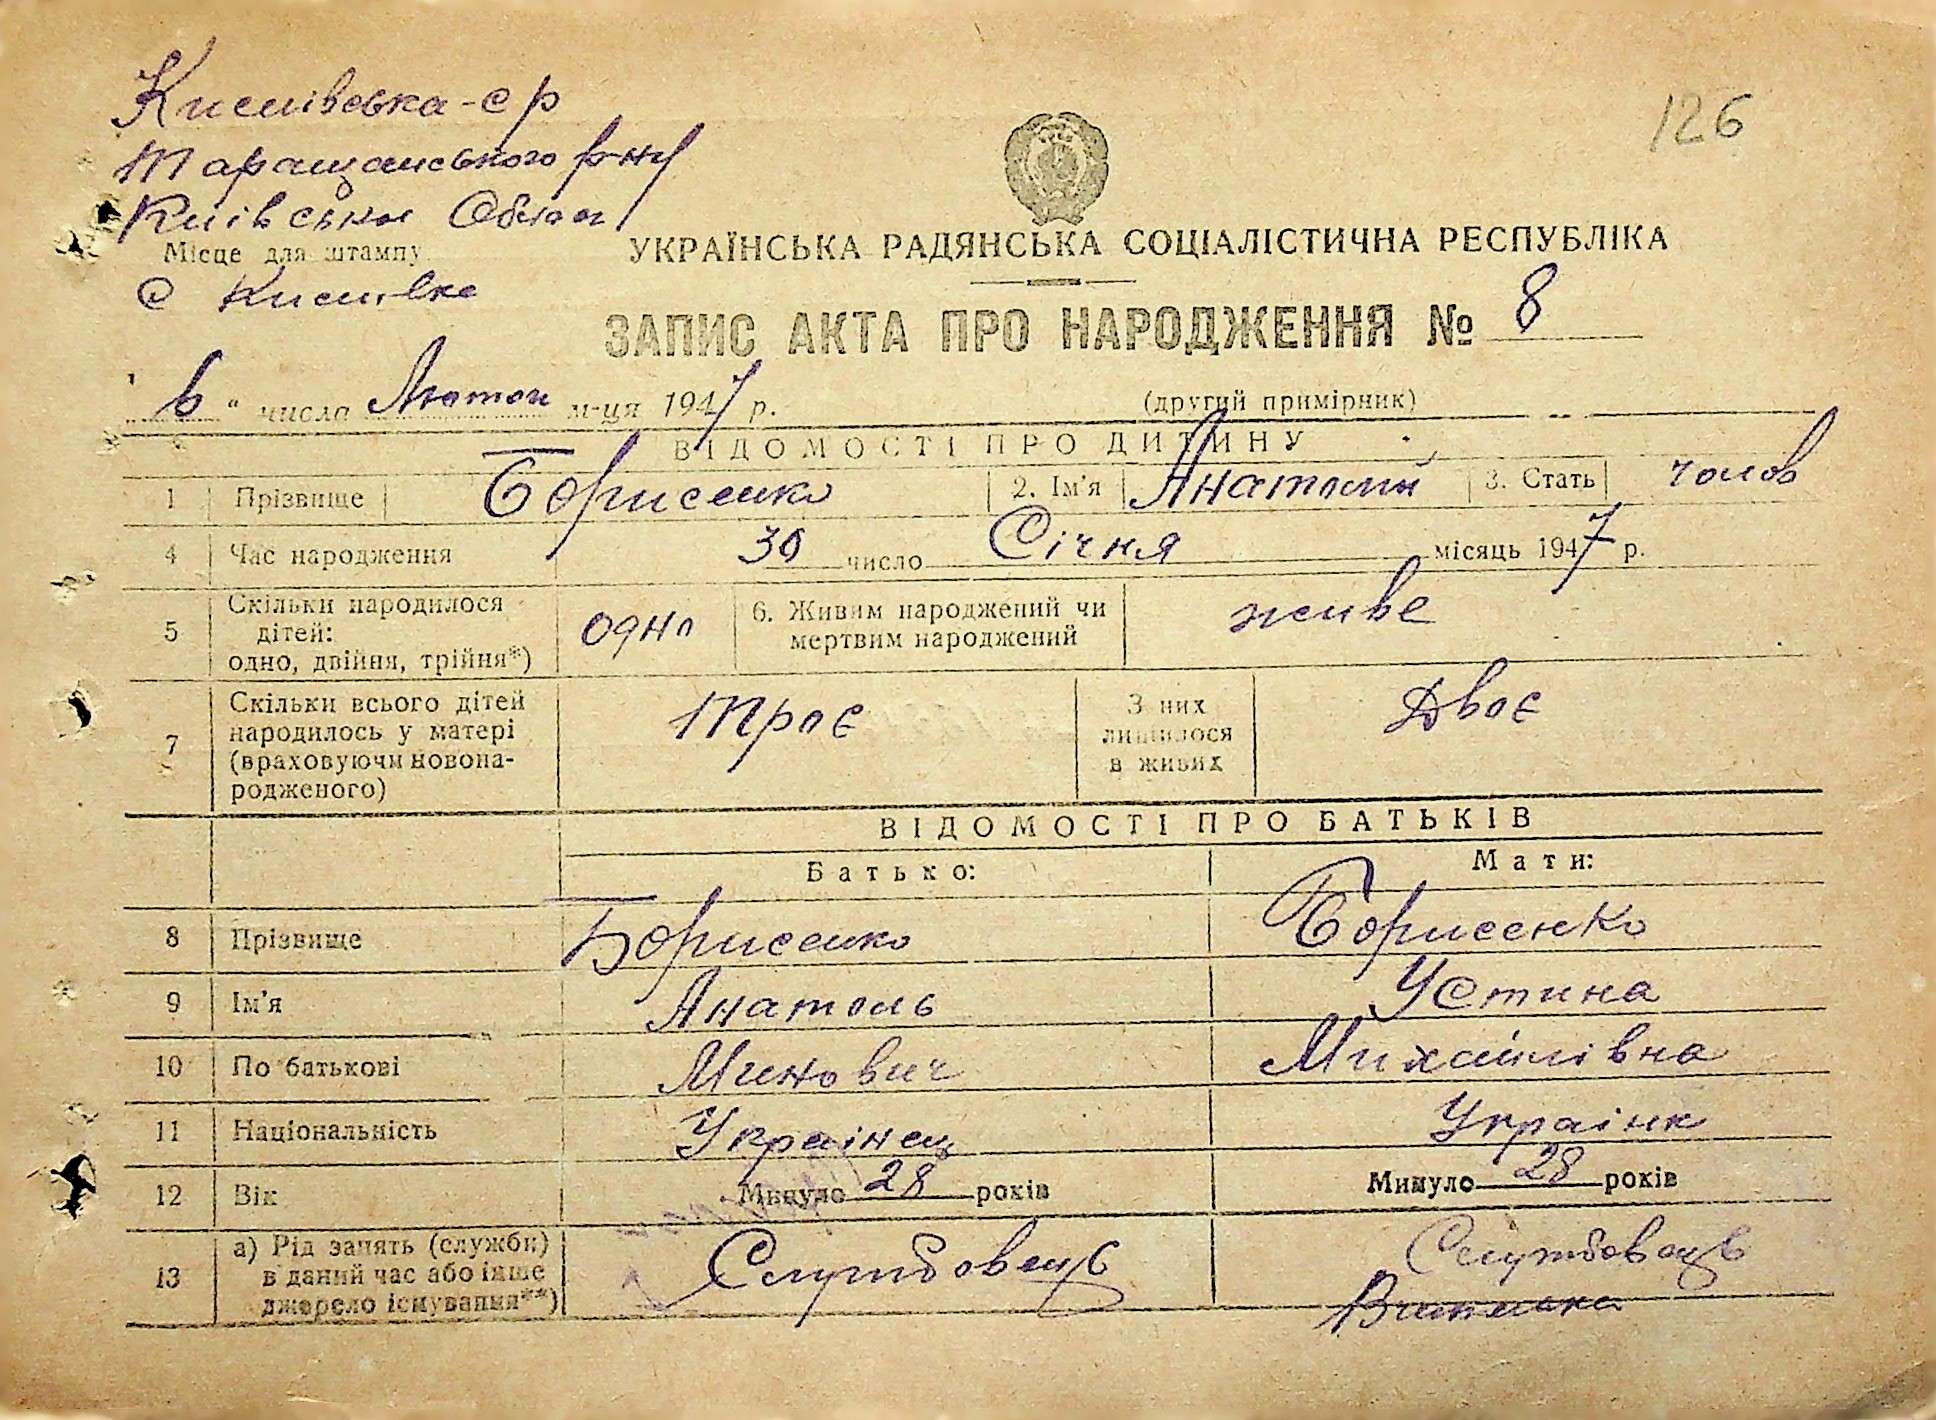 Кислівська - с р
Таращанського р-ну
Київська Област
126
УКРАЇНСЬКА РАДЯНСЬКА СОЦІАЛІСТИЧНА РЕСПУБЛІКА
Місце для штампу
с Кислівка
ЗАПИС АКТА ПРО НАРОДЖЕННЯ № 8
" 6 " числа Лютого м-ця 1947 р.
(другий примірник)
ВІДОМОСТІ ПРО ДИТИНУ
1 Прізвище Борисенко 2. Ім'я Анатолий 3. Стать чолов
4 Час народження 30 число Січня місяць 1947 р.
5 Скільки народилося дітей: одно, двійня, трійня*) одно 6. Живим народжений чи мертвим народжений живе
7 Скільки всього дітей народилось у матері (враховуючи новонародженого) троє З них лишилося в живих Двоє
ВІДОМОСТІ ПРО БАТЬКІВ
Батько: Мати:
8 Прізвище Борисенко Борисенко
9 Ім'я Анатоль Устина
10 По батькові Минович Михайлівна
11 Національність Українець Українк
12 Вік Минуло 28 років Минуло 28 років
13 а) Рід занять (служби) в даний час або інше джерело існування**) Службовець Службовець
Вчителька